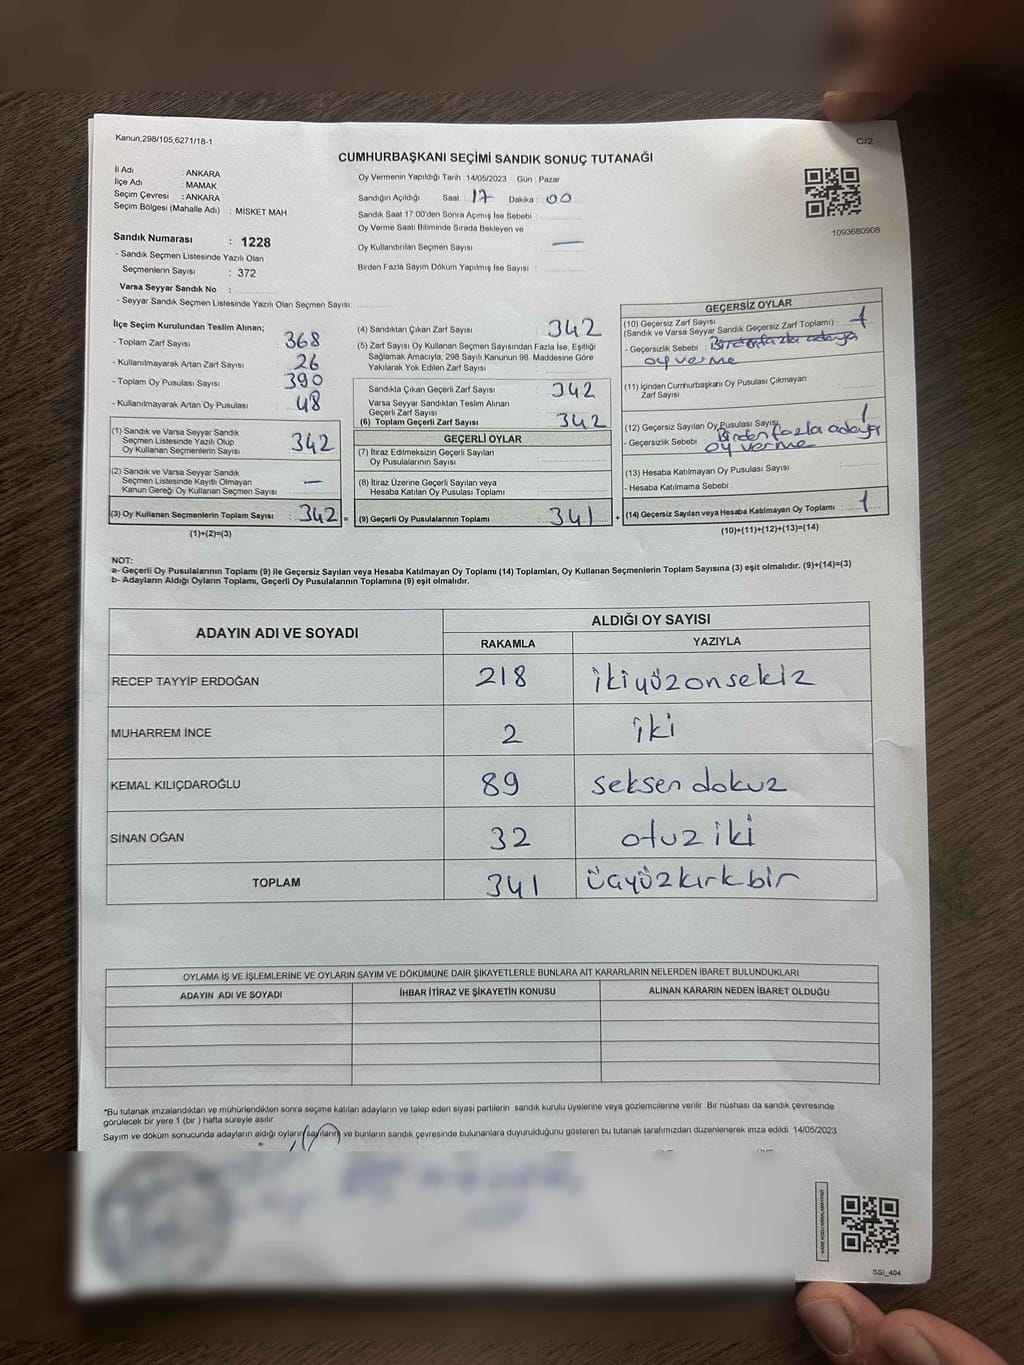 Kanun,298/105,6271/18-1
C/2
CUMHURBAŞKANI SEÇİMİ SANDIK SONUÇ TUTANAĞI
İl Adı : ANKARA
İlçe Adı : MAMAK
Seçim Çevresi : ANKARA
Seçim Bölgesi (Mahalle Adı) : MİSKET MAH
Sandık Numarası : 1228
- Sandık Seçmen Listesinde Yazılı Olan
Seçmenlerin Sayısı : 372
Varsa Seyyar Sandık No :
- Seyyar Sandık Seçmen Listesinde Yazılı Olan Seçmen Sayısı
Oy Vermenin Yapıldığı Tarih : 14/05/2023 Gün : Pazar
Sandığın Açıldığı Saat : 17 Dakika : 00
Sandık Saat 17:00'den Sonra Açımış İse Sebebi :
Oy Verme Saati Bitiminde Sırada Bekleyen ve
Oy Kullandırılan Seçmen Sayısı : —
Birden Fazla Sayım Döküm Yapılmış İse Sayısı :
1093680908
İlçe Seçim Kurulundan Teslim Alınan;
- Toplam Zarf Sayısı : 368
- Kullanılmayarak Artan Zarf Sayısı : 26
- Toplam Oy Pusulası Sayısı : 390
- Kullanılmayarak Artan Oy Pusulası : 48
(1) Sandık ve Varsa Seyyar Sandık
Seçmen Listesinde Yazılı Olup
Oy Kullanan Seçmenlerin Sayısı : 342
(2) Sandık ve Varsa Seyyar Sandık
Seçmen Listesinde Kayıtlı Olmayan
Kanun Gereği Oy Kullanan Seçmen Sayısı : —
(3) Oy Kullanan Seçmenlerin Toplam Sayısı : 342 =
(1)+(2)=(3)
(4) Sandıktan Çıkan Zarf Sayısı : 342
(5) Zarf Sayısı Oy Kullanan Seçmen Sayısından Fazla İse, Eşitliği
Sağlamak Amacıyla, 298 Sayılı Kanunun 98. Maddesine Göre
Yakılarak Yok Edilen Zarf Sayısı :
Sandıkta Çıkan Geçerli Zarf Sayısı : 342
Varsa Seyyar Sandıktan Teslim Alınan
Geçerli Zarf Sayısı :
(6) Toplam Geçerli Zarf Sayısı : 342
GEÇERLİ OYLAR
(7) İtiraz Edilmeksizin Geçerli Sayılan
Oy Pusulalarının Sayısı :
(8) İtiraz Üzerine Geçerli Sayılan veya
Hesaba Katılan Oy Pusulası Toplamı :
(9) Geçerli Oy Pusulalarının Toplamı : 341 +
GEÇERSİZ OYLAR
(10) Geçersiz Zarf Sayısı
(Sandık ve Varsa Seyyar Sandık Geçersiz Zarf Toplamı) : 1
- Geçersizlik Sebebi : Birden fazla adaya
oy verme
(11) İçinden Cumhurbaşkanı Oy Pusulası Çıkmayan
Zarf Sayısı :
(12) Geçersiz Sayılan Oy Pusulası Sayısı : 1
- Geçersizlik Sebebi : Birden fazla adaya
oy verme
(13) Hesaba Katılmayan Oy Pusulası Sayısı :
- Hesaba Katılmama Sebebi :
(14) Geçersiz Sayılan veya Hesaba Katılmayan Oy Toplamı : 1
(10)+(11)+(12)+(13)=(14)
NOT:
a- Geçerli Oy Pusulalarının Toplamı (9) ile Geçersiz Sayılan veya Hesaba Katılmayan Oy Toplamı (14) Toplamları, Oy Kullanan Seçmenlerin Toplam Sayısına (3) eşit olmalıdır. (9)+(14)=(3)
b- Adayların Aldığı Oyların Toplamı, Geçerli Oy Pusulalarının Toplamına (9) eşit olmalıdır.
ADAYIN ADI VE SOYADI ALDIĞI OY SAYISI
RAKAMLA YAZIYLA
RECEP TAYYİP ERDOĞAN 218 ikiyüzonsekiz
MUHARREM İNCE 2 iki
KEMAL KILIÇDAROĞLU 89 seksen dokuz
SİNAN OĞAN 32 otuz iki
TOPLAM 341 üçyüzkırkbir
OYLAMA İŞ VE İŞLEMLERİNE VE OYLARIN SAYIM VE DÖKÜMÜNE DAİR ŞİKAYETLERLE BUNLARA AİT KARARLARIN NELERDEN İBARET BULUNDUKLARI
ADAYIN ADI VE SOYADI İHBAR İTİRAZ VE ŞİKAYETİN KONUSU ALINAN KARARIN NEDEN İBARET OLDUĞU
*Bu tutanak imzalandıktan ve mühürlendikten sonra seçime katılan adayların ve talep eden siyasi partilerin sandık kurulu üyelerine veya gözlemcilerine verilir. Bir nüshası da sandık çevresinde
görülecek bir yere 1 (bir ) hafta süreyle asılır.
Sayım ve döküm sonucunda adayların aldığı oyların sayılarını ve bunların sandık çevresinde bulunanlara duyurulduğunu gösteren bu tutanak tarafımızdan düzenlenerek imza edildi. 14/05/2023
SSI_404